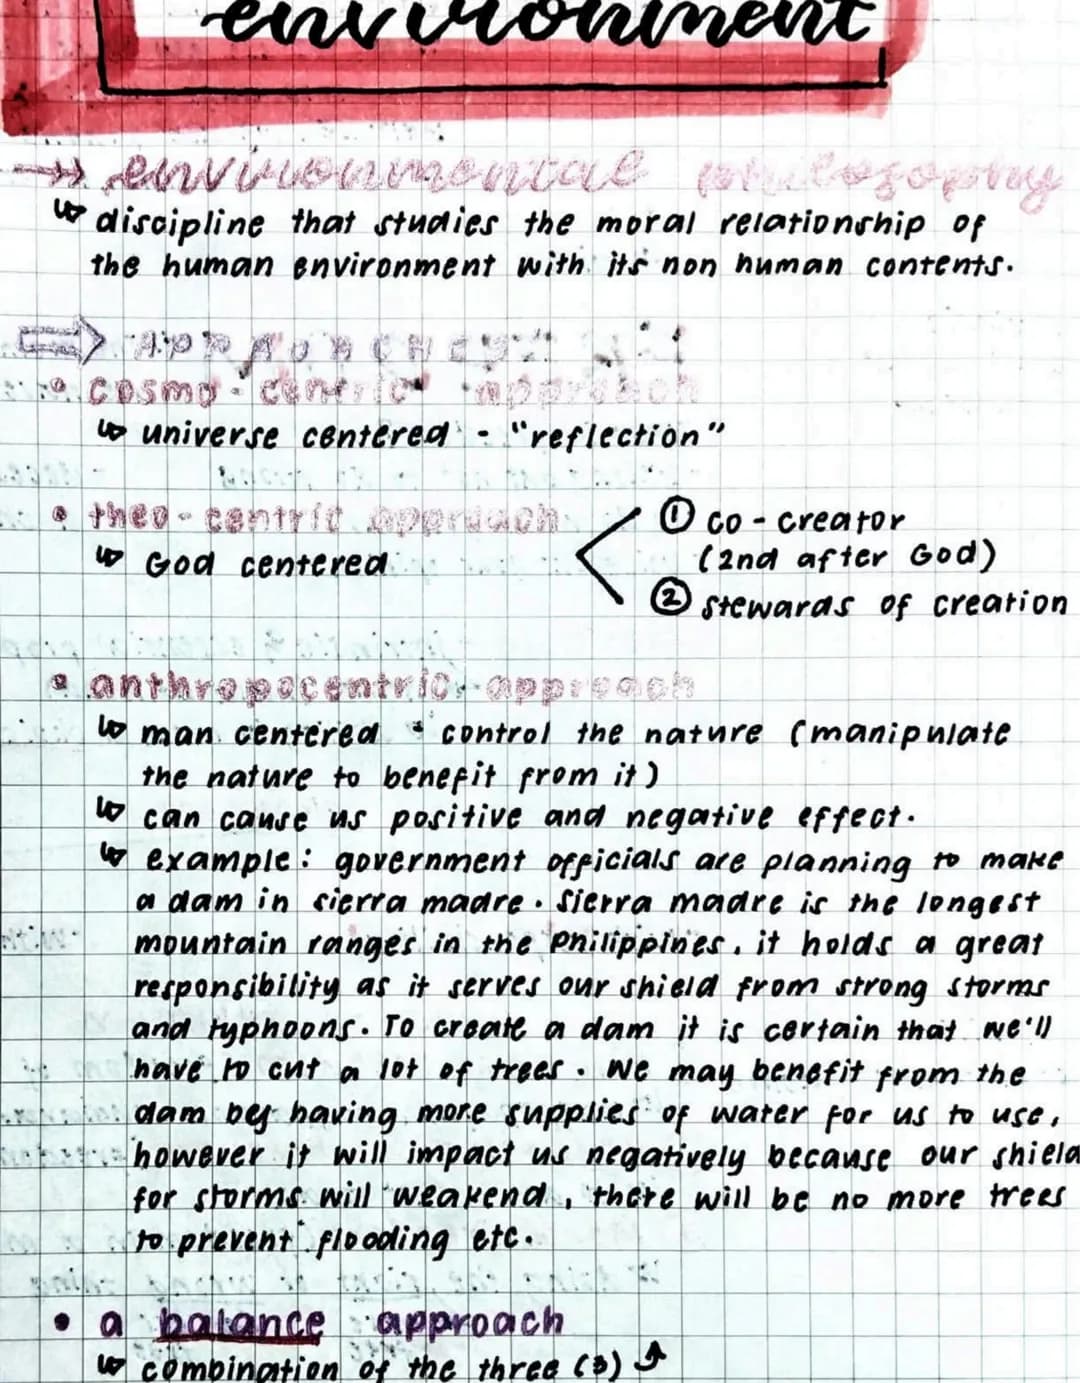 environment
environmental philosophy
discipline that studies the moral relationship of
the human environment with its non human contents.
APPROACHES:
cosmo-centric approach
universe centered - "reflection"
theo-centric approach
God centered
① co-creator
(2nd after God)
② stewards of creation
anthropocentric approach
man centered • control the nature (manipulate
the nature to benefit from it)
can cause us positive and negative effect.
example: government officials are planning to make
a dam in sierra madre. Sierra madre is the longest
mountain ranges in the Philippines, it holds a great
responsibility as it serves our shield from strong storms
and typhoons. To create a dam it is certain that we'll
have to cut a lot of trees. We may benefit from the
dam by having more supplies of water for us to use,
however it will impact us negatively because our shield
for storms will weakend, there will be no more trees
to prevent flooding etc.
a balance approach
combination of the three (3)